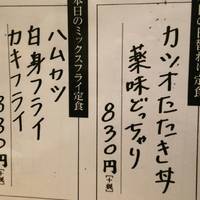 カツオたたき丼
薬味どっちゃり
830円
[+税]
本日のミックスフライ定食
ハムカツ
白身フライ
カキフライ
830円
[+税]